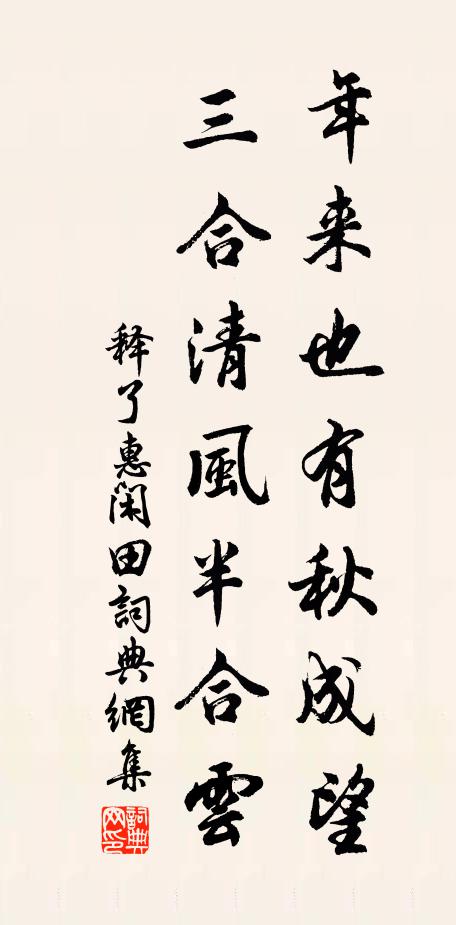 年来也有秋成望
三合清風半合雲
释了惠闲田詞典網集
詞典網印